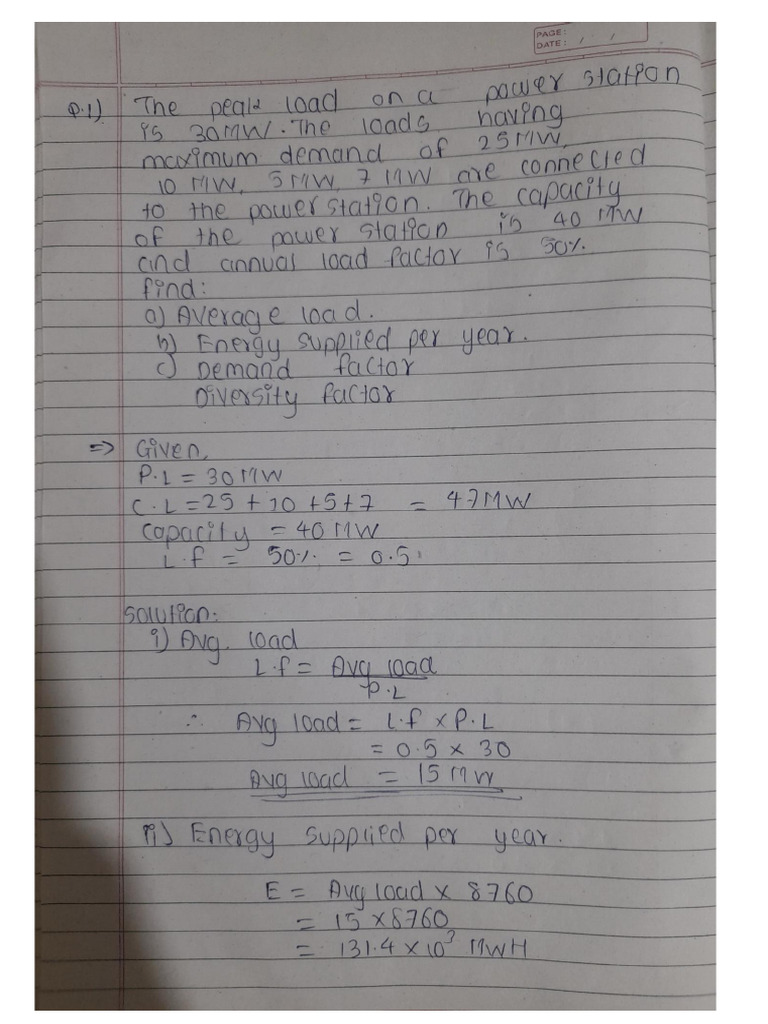 PAGE:
DATE: / /
Q.1) The peak load on a power station
is 30MW. The loads having
maximum demand of 25MW,
10 MW, 5MW, 7 MW are connected
to the power station. The capacity
of the power station is 40 MW
and annual load factor is 50%.
find:
a) Average load.
b) Energy supplied per year.
c) Demand factor
Diversity factor
=> Given,
P.L = 30MW
C.L = 25 + 10 + 5 + 7 = 47MW
Capacity = 40 MW
L.f = 50% = 0.5
Solution:
i) Avg. load
L.f = Avg load
P.L
∴ Avg load = L.f × P.L
= 0.5 × 30
Avg load = 15 MW
ii) Energy supplied per year.
E = Avg load × 8760
= 15 × 8760
= 131.4 × 10³ MWH